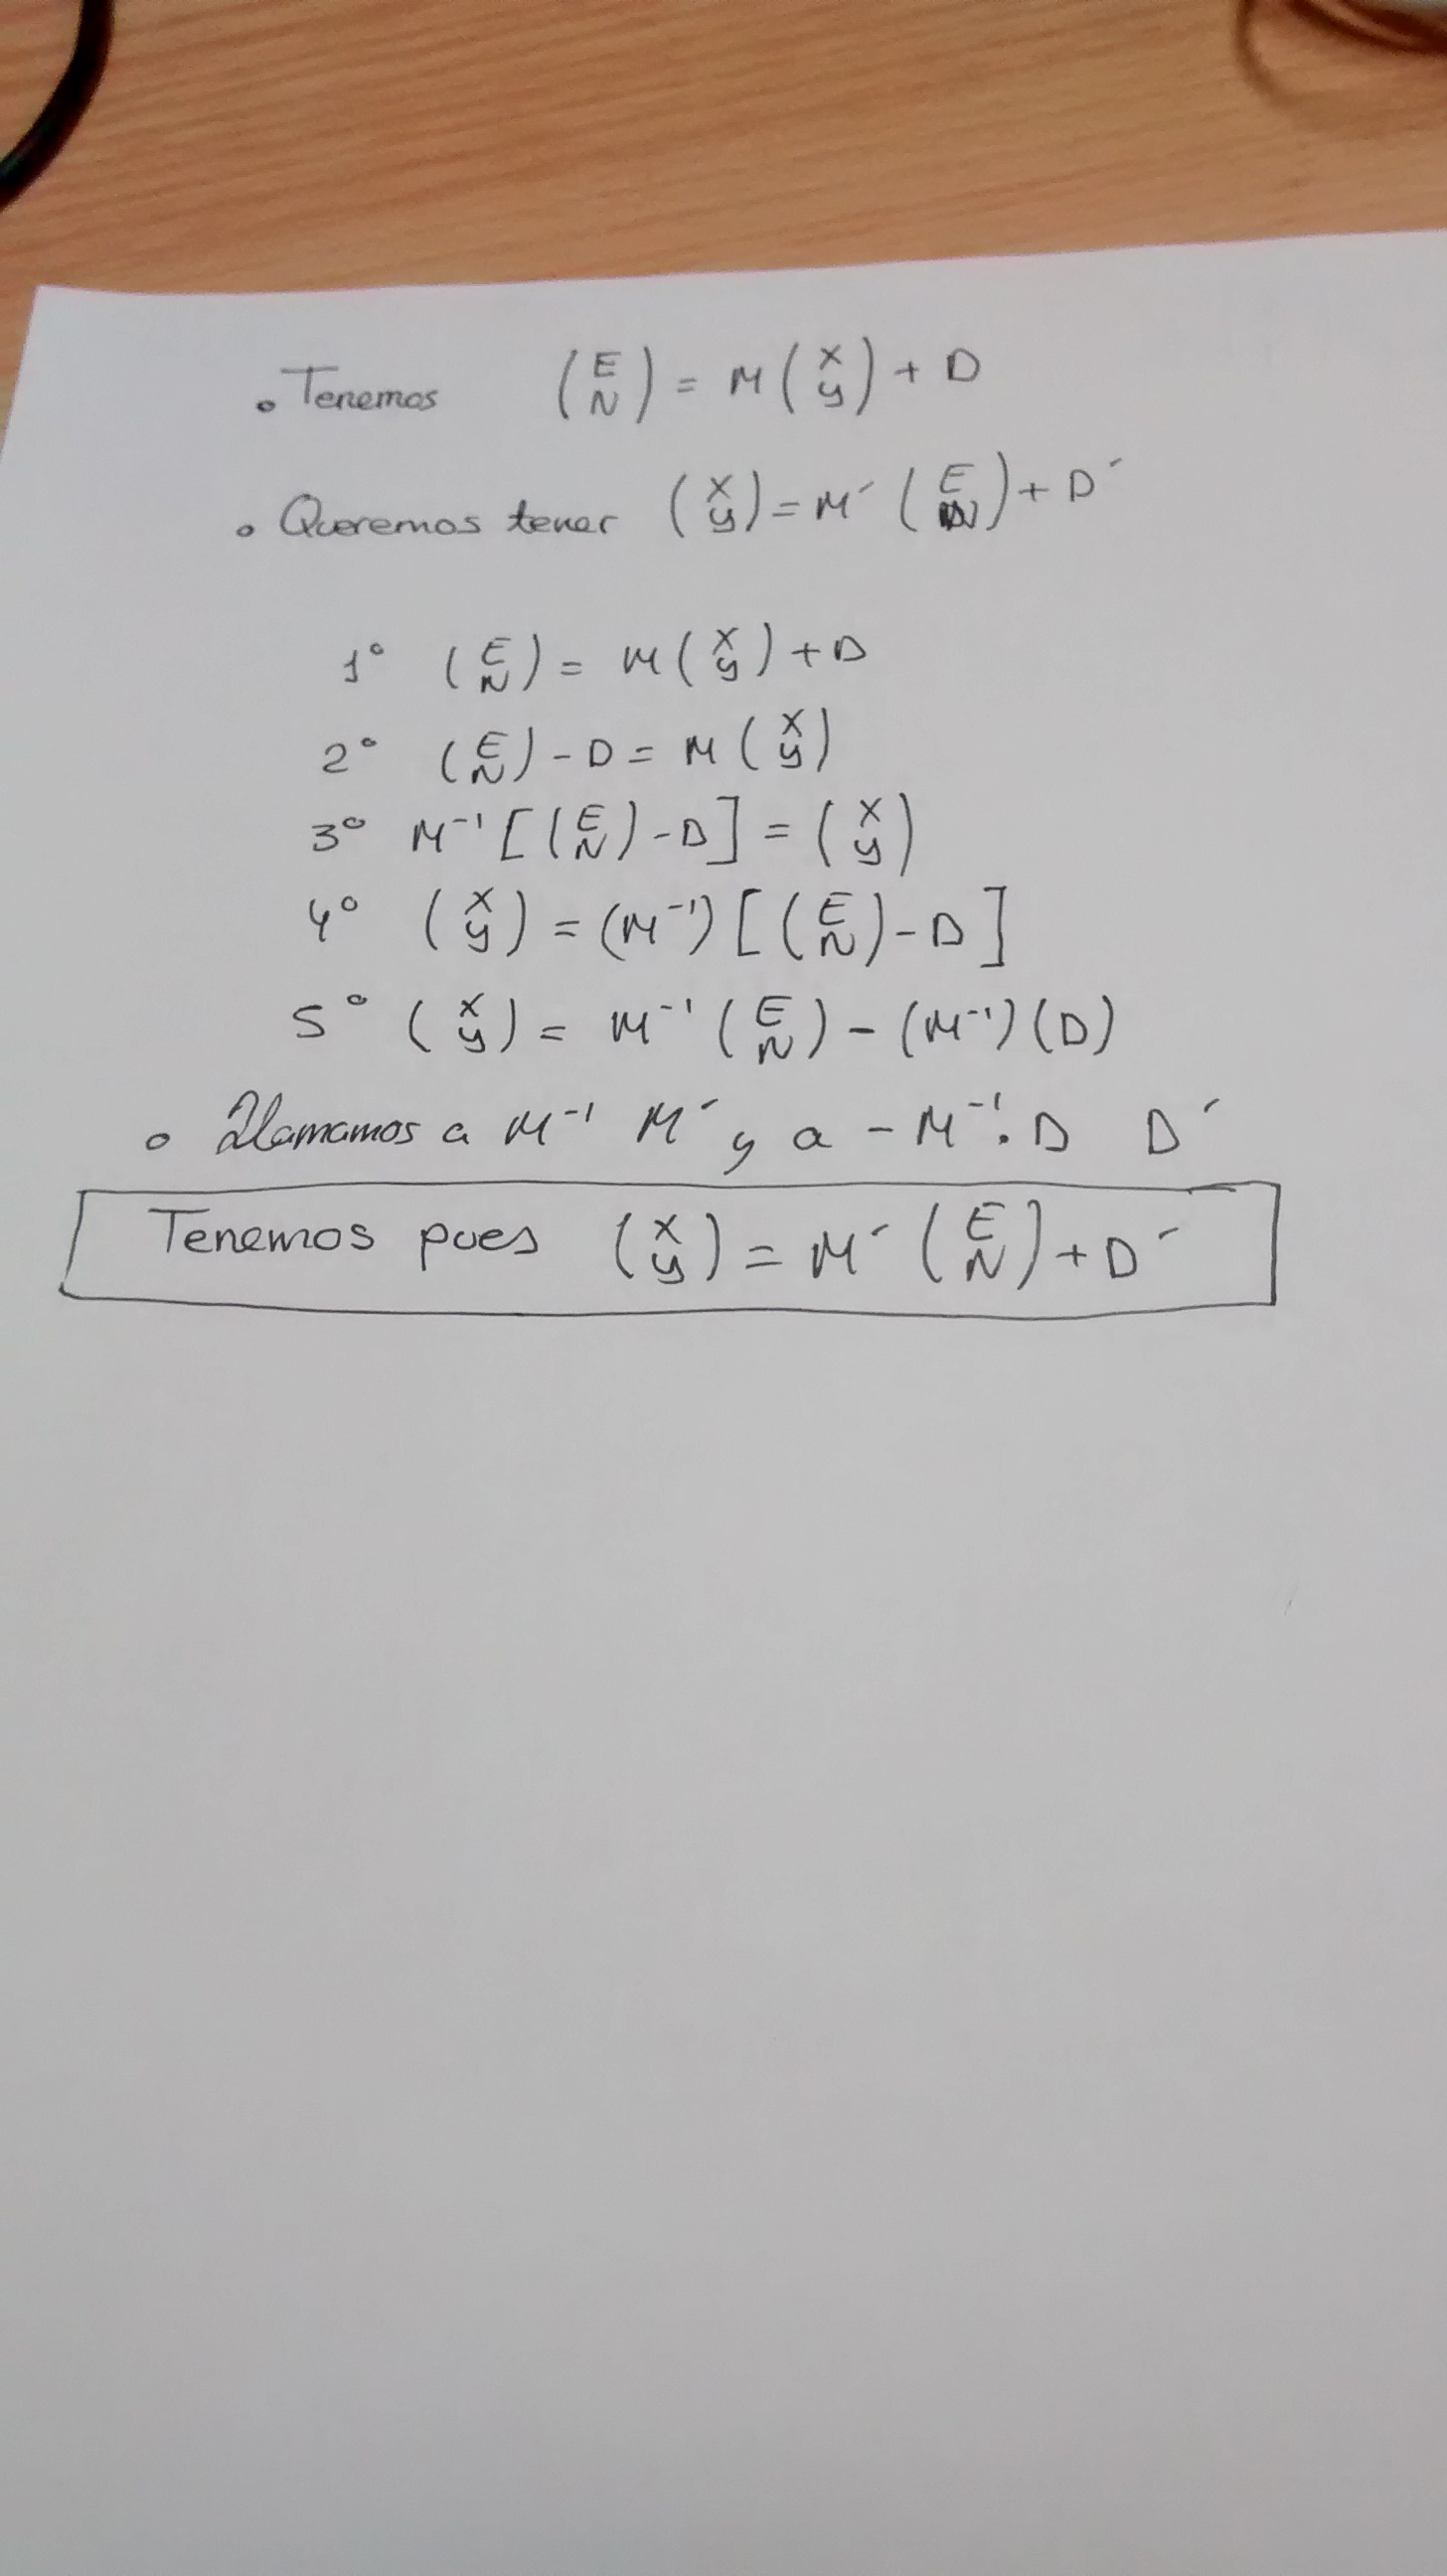 • Tenemos (E N) = M (x y) + D
• Queremos tener (x y) = M´ (E N) + D´
1º (E N) = M (x y) + D
2º (E N) - D = M (x y)
3º M⁻¹ [(E N) - D] = (x y)
4º (x y) = (M⁻¹) [(E N) - D]
5º (x y) = M⁻¹ (E N) - (M⁻¹) (D)
• Llamamos a M⁻¹ M´ y a - M⁻¹ · D D´
Tenemos pues (x y) = M´ (E N) + D´